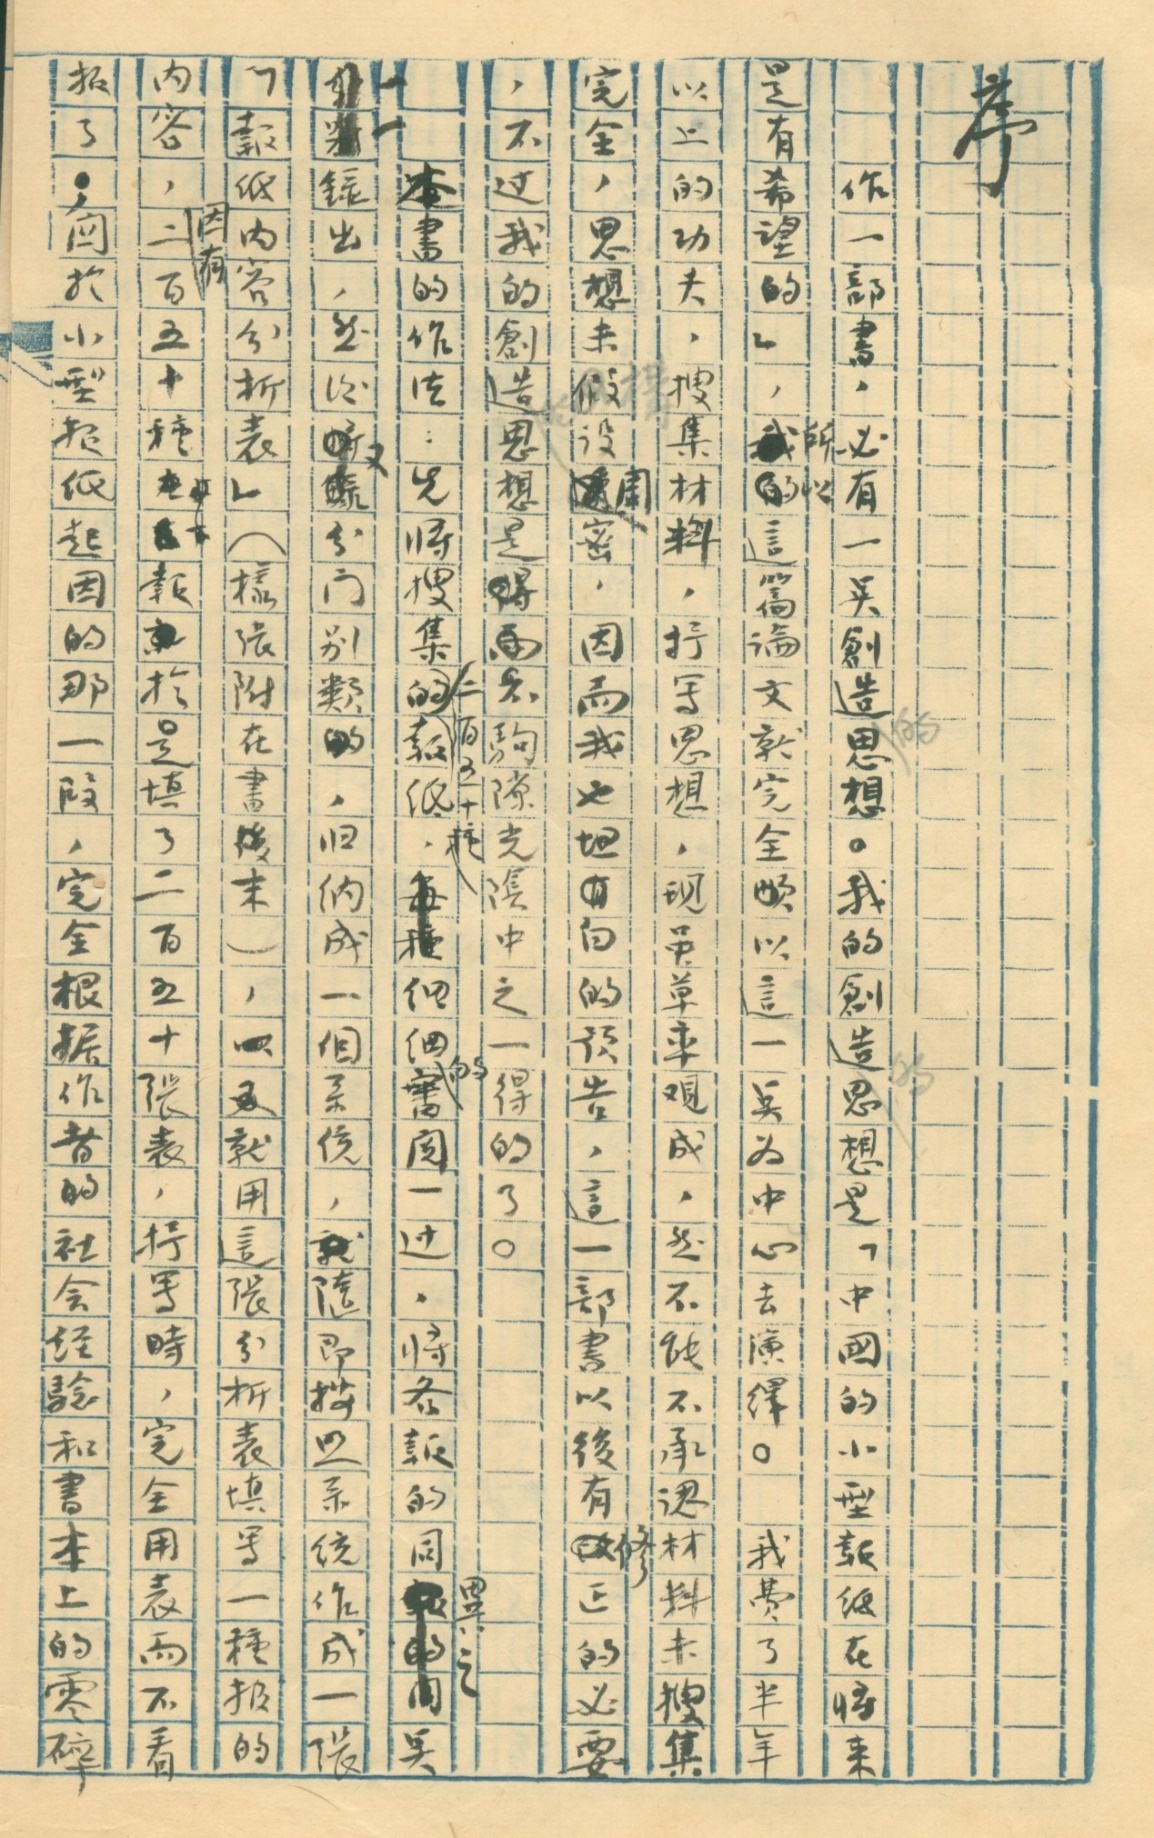 序
作一部書，必有一吳創造思想。我的創造思想是「中國的小型報紙在將來
是有希望的」，所以這篇論文就完全賴以這一吳為中心去演繹。我費了半年
以上的功夫，搜集材料，抒写思想，現虽草率观成，然不能不承認材料未搜集
完全，思想未假設周密，因而我也坦白的預告，這一部書以後有修正的必要
，不过我的創造思想是得而不駒隙光陰中之一得的了。
本書的作法：先将搜集的二百五十種報紙，細細的審閱一过，将各報的同異之吴
錄出，然後又分门别類的，归納成一個系統，就随即按照系統作成一張
「報紙內容分析表」（樣張附在書後末），就用這張分析表填写一種报的
內容，因有二百五十種報於是填了二百五十張表，抒写時，完全用表而不看
报了，関於小型报纸起因的那一段，完全根据作者的社会经驗和書本上的零碎